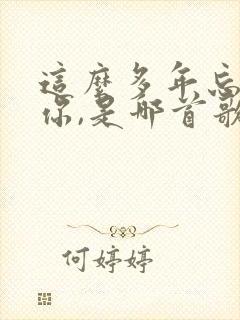 這麼多年忘
你,是哪首歌
何婷婷